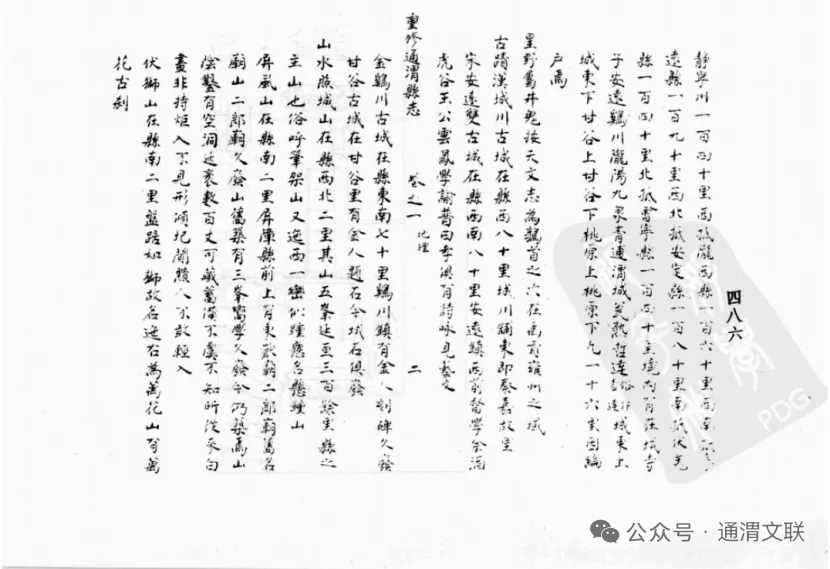 四八六
靜寧川一百四十里西抵隴西縣一百六十里西南
遠縣一百九十里西北抵安定縣一百八十里南抵伏羌
縣一百四十里北抵會寧縣一百四十里境內有在城寺
子安遠鷄川隴陽九泉青連渭城 城東上
城東下甘谷上甘谷下桃源上桃源下 一十六里因編
戶焉
星野屬井鬼按天文志為鶉首之次在南有雍州之域
古蹟漢城川古城在縣西八十里城川鋪東即蔡嘉故里
宋安遠雙古城在縣西南八十里安遠鎮西前督學
虎谷王公雲鳳學諭普四李淇有詩咏見藝文
重修通渭縣志
卷之一
地理
二
金鷄川古城在縣東南七十里鷄川鎮有金人刻碑久廢
甘谷古城在甘谷里有金人題石今城石俱廢
山水旗城山在縣西北二里其山五峯延亘三百餘里縣之
主山也俗呼筆架山又迤西一巒似鐘懸名懸鐘山
屏風山在縣南二里屏障縣前上有東嶽廟二郎廟舊名
廟山二郎廟久廢山舊築有三峯 學久廢今仍築焉山
陰鑿有空洞延袤數百丈可藏萬 不虞不知所從來白
晝非持炬入不見形傾圮闇黯人不敢輕入
伏獅山在縣南二里盤踞如獅故名迤右為萬花山有萬
花古刹
公众号·通渭文联
PDG